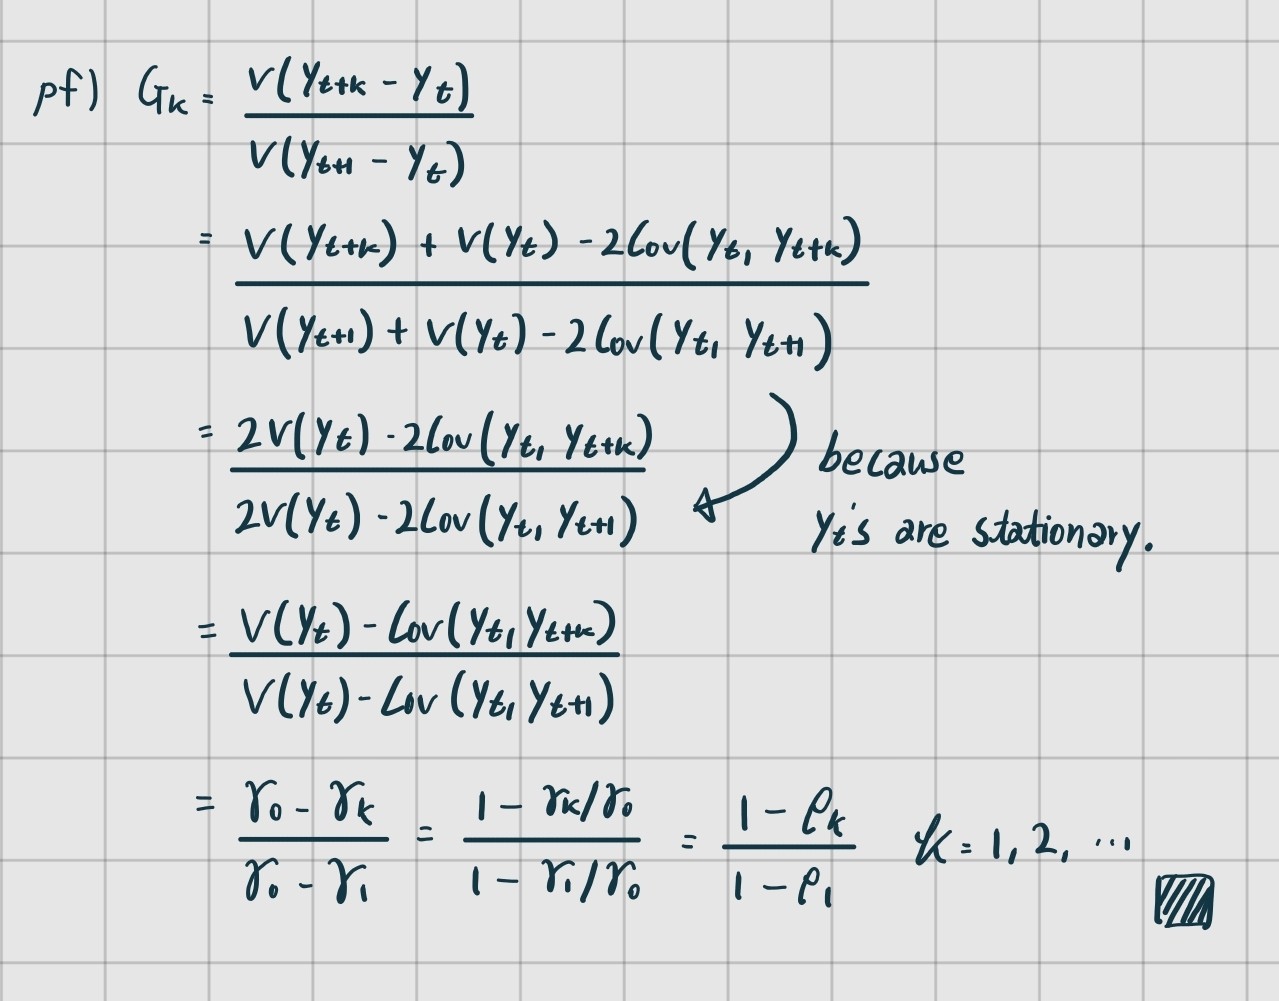 pf) G_k = V(y_{t+k} - y_t) / V(y_{t+1} - y_t)
= (V(y_{t+k}) + V(y_t) - 2Cov(y_t, y_{t+k})) / (V(y_{t+1}) + V(y_t) - 2Cov(y_t, y_{t+1}))
= (2V(y_t) - 2Cov(y_t, y_{t+k})) / (2V(y_t) - 2Cov(y_t, y_{t+1}))
because
y_t's are stationary.
= (V(y_t) - Cov(y_t, y_{t+k})) / (V(y_t) - Cov(y_t, y_{t+1}))
= (γ_0 - γ_k) / (γ_0 - γ_1) = (1 - γ_k/γ_0) / (1 - γ_1/γ_0) = (1 - ρ_k) / (1 - ρ_1) k = 1, 2, ...